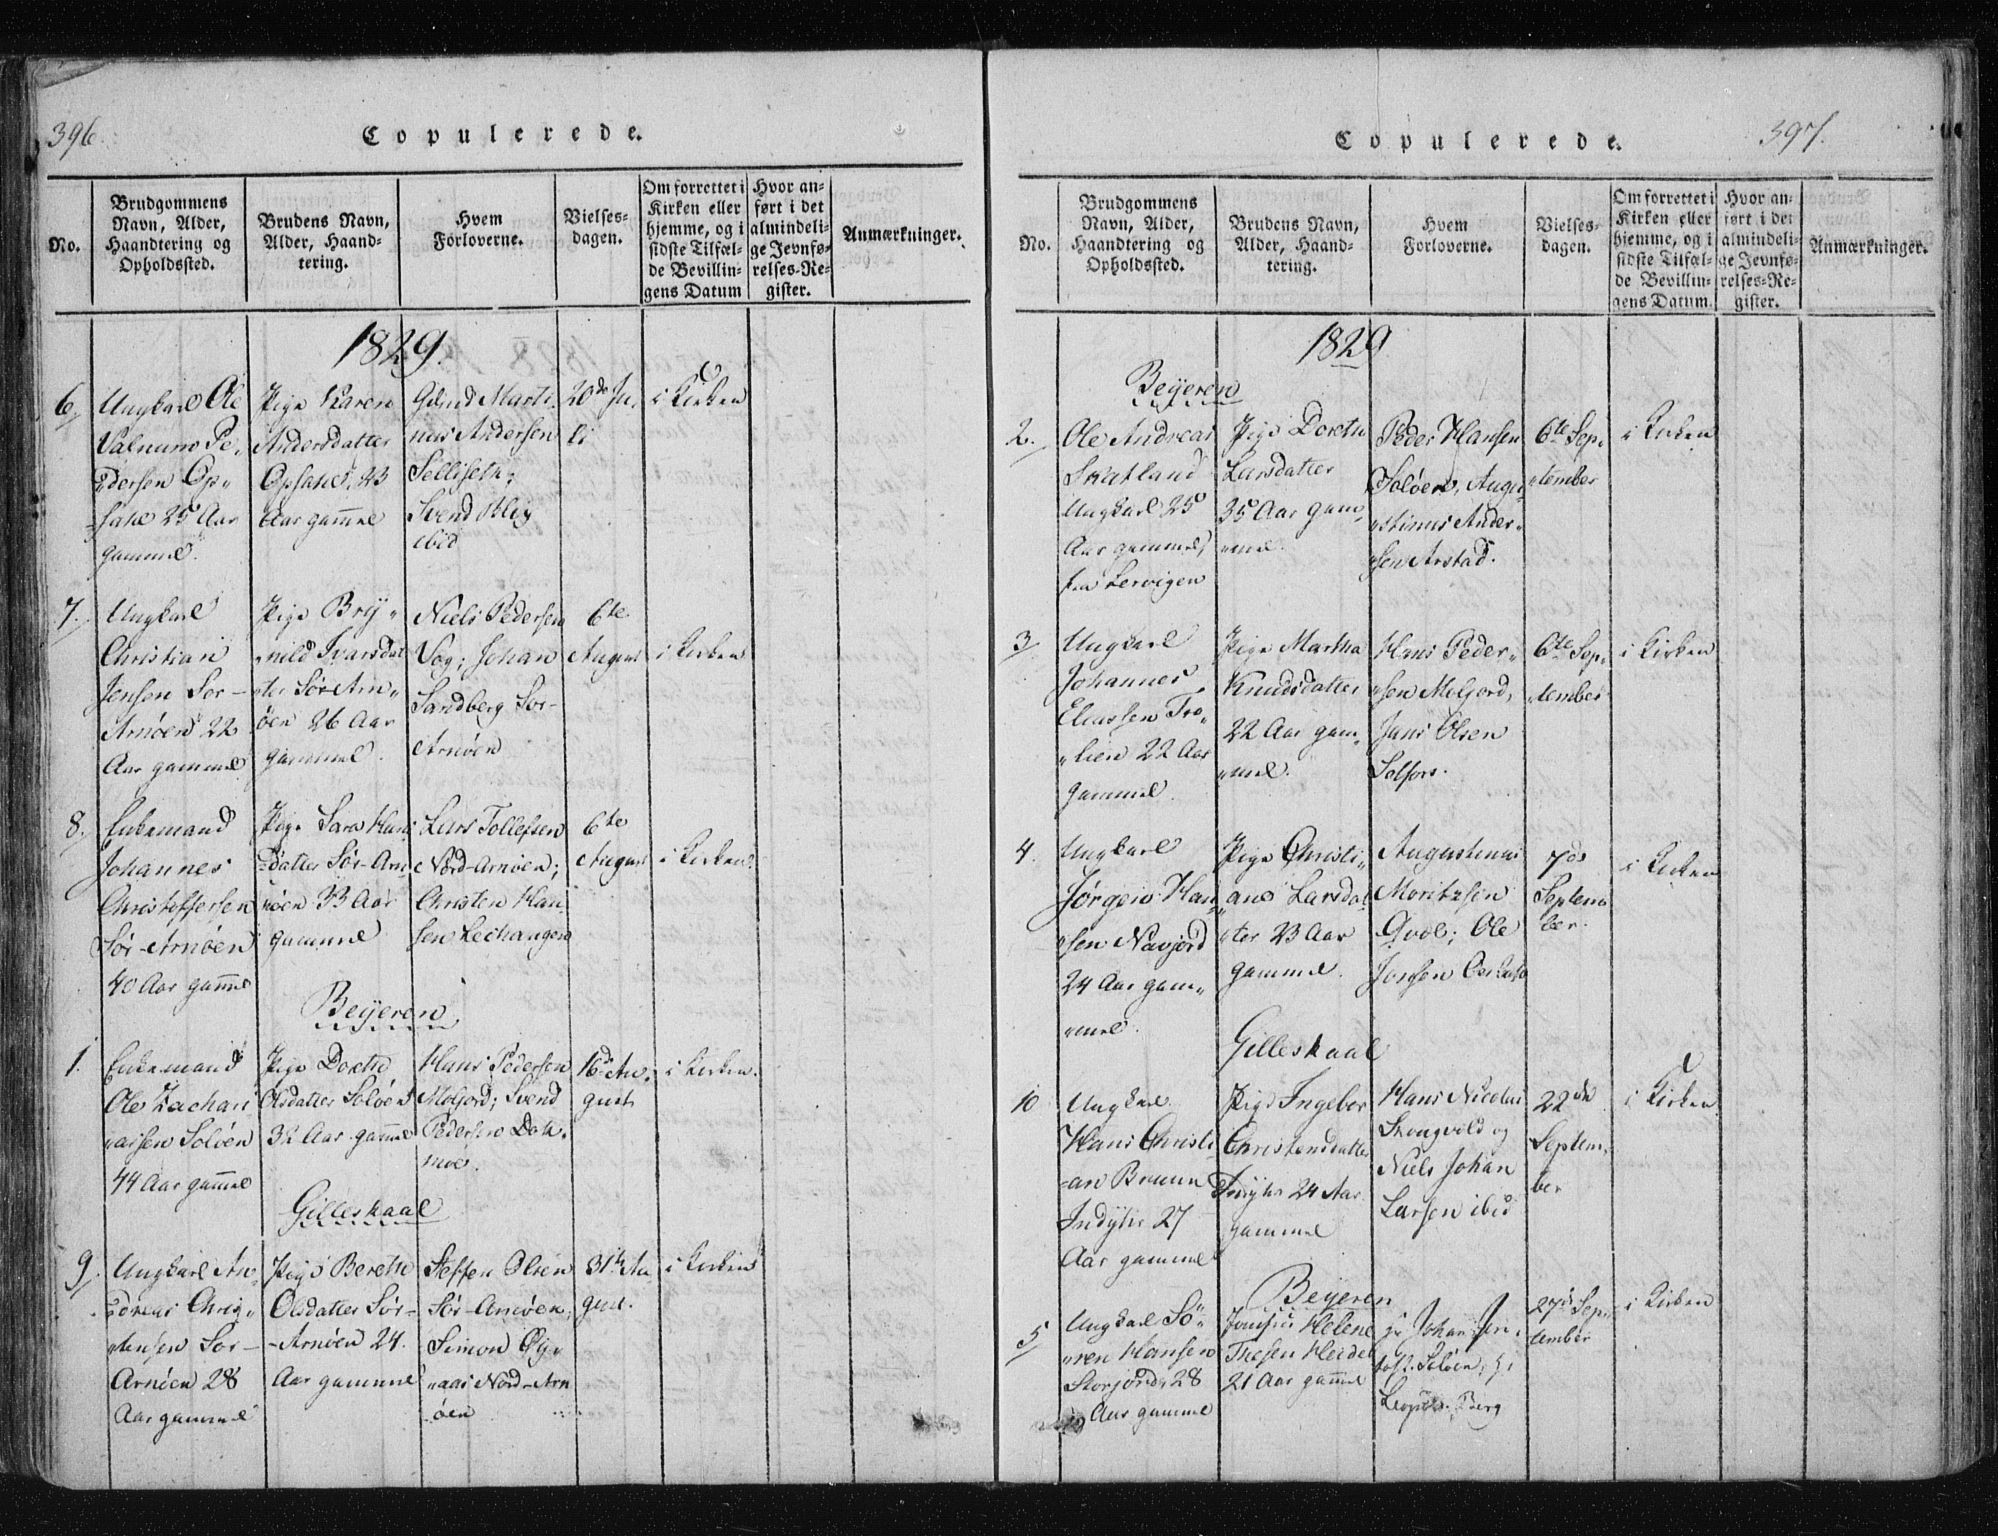 396.
Copulerede.
No.
Brudgommens
Navn, Alder,
Haandtering og
Opholdssted.
Brudens Navn,
Alder, Haand-
tering.
Hvem
Forloverne.
Vielses-
dagen.
Om forrettet i
Kirken eller
hjemme, og i
sidste Tilfæl-
de Bevillin-
gens Datum
Hvor an-
ført i det
almindeli-
ge Jevnfø-
relses-Re-
gister.
Anmærkninger.
1829.
6.
Ungkarl Ole
Valnums Pe-
dersen Op-
sahl 25 Aar
gammel.
Pige Karen
Andersdatter
Opsahl, 23
Aar gammel
Gdmd Marti-
nus Andersen
Selliseth;
Svend Blix
ibid
20de Ju-
li
i Kirken
7.
Ungkarl
Christian
Jensen Sør-
Arnøen 22
Aar gammel
Pige Bry-
nild Ivarsdat
ter Sør Arn-
øen 26 Aar
gammel.
Niels Pedersen
Vog; Johan
Sandberg Sør-
Arnøen
6te
August
i Kirken
8.
Enkemand
Johannes
Christophersen
Sør-Arnøen
40 Aar gammel
Pige Sara Hans
datter Sør-Arn
øen 33 Aar
gammel
Lars Tollefsen
Nord-Arnøen;
Christen Han-
sen Lechangen
6te
August
i Kirken.
Beyeren.
1.
Enkemand
Ole Zachari
asen Soløen
44 Aar gammel
Pige Dorthe
Olsdatter Soløen
32 Aar gammel
Hans Pedersen
Molfjord; Svend
Pedersen Dok-
moe.
16de Au-
gust
i Kirken.
Gilleskaal
9.
Ungkarl An-
dreas Chri-
stensen Sør-
Arnøen 28
Aar gammel
Pige Berethe
Olsdatter Sør-
-Arnøen 24
Aar gammel
Steffen Olsen
Sør-Arnøen,
Simon Øly-
aas Nord-Arn
øen
31te Au
gust.
i Kirken
397.
Copulerede.
No.
Brudgommens
Navn, Alder,
Haandtering og
Opholdssted.
Brudens Navn,
Alder, Haand-
tering.
Hvem
Forloverne.
Vielses-
dagen.
Om forrettet i
Kirken eller
hjemme, og i
sidste Tilfæl-
de Bevillin-
gens Datum.
Hvor an-
ført i det
almindeli-
ge Jevnfø-
relses-Re-
gister.
Anmærkninger.
1829
Beyeren
2.
Ole Andreas
Skatland
Ungkarl 25
Aar gammel,
fra Lervigen
Pige Dorthe
Larsdatter
35 Aar gam-
mel.
Peder Hansen
Soløen, Augu-
stinus Ander-
sen Arstad.
6te Sep-
tember
i Kirken
3.
Ungkarl
Johannes
Eliassen Tro-
lien 22 Aar
gammel.
Pige Martha
Knudsdatter
22 Aar gam-
mel.
Hans Peder-
sen Molfjord,
Jens Olsen
Solfors.
6te Sep-
tember
i Kirken
4.
Ungkarl
Jørgen Han-
sen Navjord
24 Aar gam-
mel.
Pige Christi-
ane Larsdat
ter 23 Aar
gammel.
Augustinus
Moritzsen
Qvæl; Ole
Jensen
7de
Septem
ber.
i Kirken
Gilleskaal
10
Ungkarl
Hans Christi
an Bruun
Indyhr 27
Aar gammel
Pige Ingebor
Christensdatter
Indyhr 24 Aar
gammel
Hans Nicolai
Skougvold og
Niels Johan
Larsen ibid
22de
Septem-
ber
i Kirken
Beyeren
5.
Ungkarl Sø-
ren Hansen
Storjord, 28
Aar gammel
Jomfru Helene
Thesen Heidel
21 Aar gammel
Johan
Soløen,
Berg
27de Sep-
tember
i Kirken